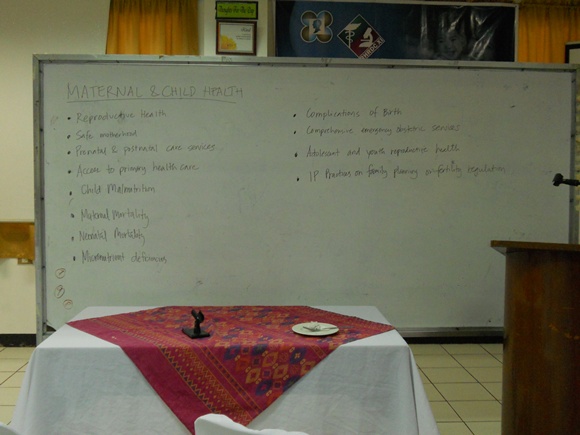 MATERNAL & CHILD HEALTH
• Reproductive Health
• Safe motherhood
• Prenatal & postnatal care services
• Access to primary health care
• Child Malnutrition
• Maternal Mortality
• Neonatal Mortality
• Micronutrient deficiencies
• Complications of Birth
• Comprehensive emergency obstetric services
• Adolescent and youth reproductive health
• IP Practices on family planning or fertility regulation